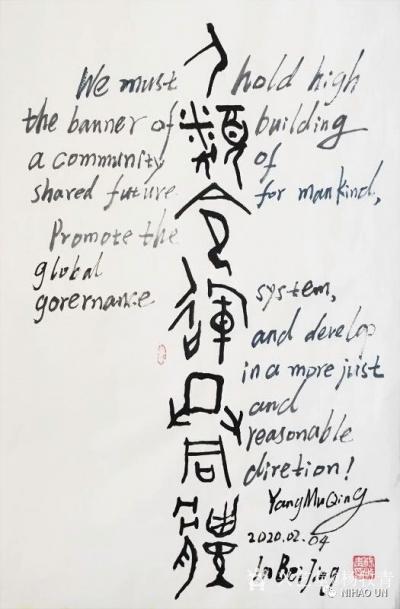 人類命運共同體
We must hold high
the banner of building
a community of
shared future for mankind,
Promote the
global
governance system,
and develop
in a more just
and
reasonable
diretion!
YangMuQing
2020.02.04
In BeiJing
杨牧青
NIHAO UN